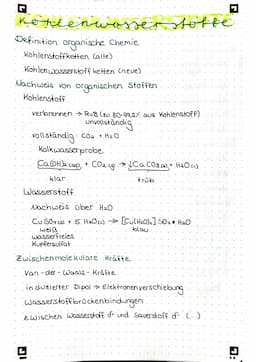 Kohlenwasserstoffe
Definition organische Chemie
Kohlenstoffketten (alte)
Kohlenwasserstoffketten (neue)
Nachweis von organischen Stoffen
Kohlenstoff
verbrennen → Ruß (zu 80-99,5% aus Kohlenstoff)
unvollständig
vollständig: CO₂ + H₂O
Kalkwasserprobe
Ca(OH)₂ (aq) + CO₂ (g) → ↓CaCO₃ (s) + H₂O (l)
klar trüb
Wasserstoff
Nachweis über H₂O
CuSO₄ (s) + 5 H₂O (l) → [Cu(H₂O)₄]SO₄ • H₂O
weiß blau
wasserfreies
Kupfersulfat
Zwischenmolekulare Kräfte
Van-der-Waals-Kräfte
induzierter Dipol → Elektronenverschiebung
Wasserstoffbrückenbindungen
zwischen Wasserstoff δ⁺ und Sauerstoff δ⁻ (..)